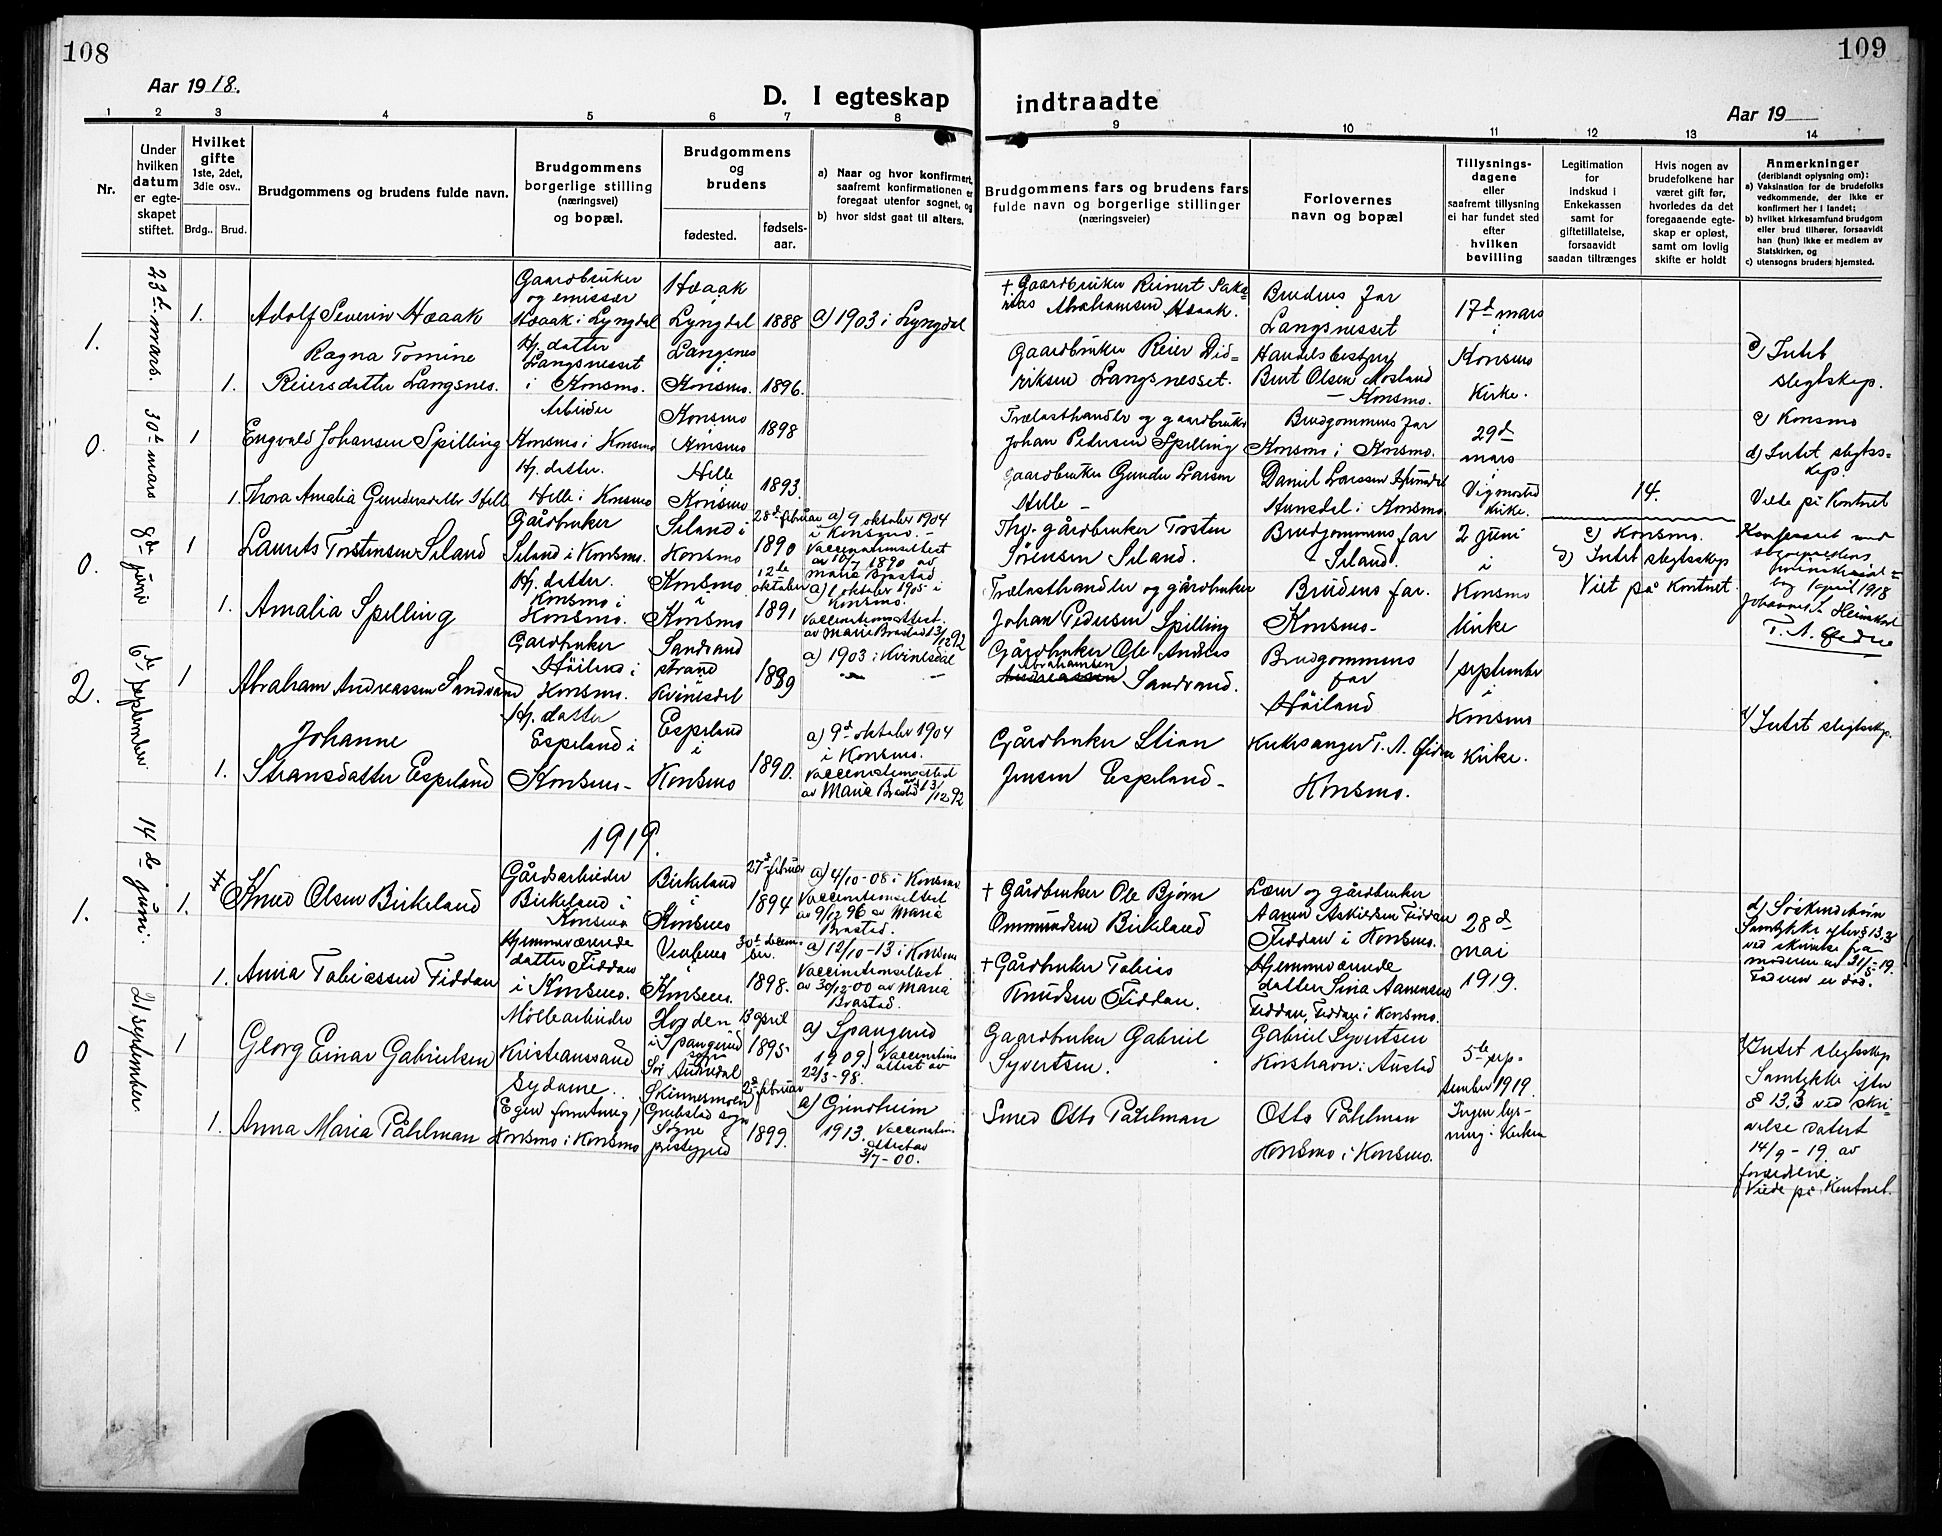 108
Aar 1918.
D. I egteskap
1 2 3 4 5 6 7 8
Nr.
Under hvilken datum er egteskapet stiftet.
Hvilket gifte 1ste, 2det, 3die osv..
Brdg.. Brud.
Brudgommens og brudens fulde navn.
Brudgommens borgerlige stilling (næringsvei) og bopæl.
Brudgommens og brudens
fødested.
fødselsaar.
a) Naar og hvor konfirmert, saafremt konfirmationen er foregaat utenfor sognet, og
b) hvor sidst gaat til alters.
1.
23d. mars.
1.
Adolf Severin Haaak
Gaardbruker
og emissær
Haaak i Lyngdal
Haaak
i
Lyngdal
1888
a) 1903 i Lyngdal
1.
Ragna Tomine
Reiersdatter Langsnes.
Hj. datter
Langsnesset
i Konsmo.
Langsnes
i
Konsmo.
1896.
0.
30te mars
1
Engvald Johansen Spilling
Arbeider
Konsmo i Konsmo
Konsmo
i
Konsmo
1898
1.
Thora Amalia Gundersdatter Helle
Hj. datter.
Helle i Konsmo
Helle
i
Konsmo
1893.
0.
8de juni
1
Laurits Torstensen Seland
Gårdbruker
Seland i Konsmo.
Seland i
Konsmo
28de februar
1890
a) 9 oktober 1904
i Konsmo. -
Vaccinationsattest
av 10/7 1890 av
Marie Brastad
1.
Amalia Spelling
Hj. datter.
Konsmo i
Konsmo.
Konsmo
i
Konsmo
12te
oktober
1891
a) 1 oktober 1905 i
Konsmo.
Vaccinationsattest.
av Marie Brastad 13/12 92
2.
6de september
1
Abraham Andreassen Sandvand
Gårdbruker
Höiland i
Konsmo.
Sandvand
strand
i
Kvinesdal
1889
a) 1903 i Kvinesdal
1.
Johanne
Stiansdatter Espeland
Hj. datter
Espeland i
Konsmo -
Espeland
i
Konsmo
1890.
a) 9de oktober 1904
i Konsmo.
Vaccinationsattest
av Marie Brastad 13/12 92
1919.
1.
14de juni.
1.
Knud Olsen Birkeland
Gårdsarbeider
Birkeland i
Konsmo
Birkeland
i
Konsmo
27de februar
1894
a) 4/10 - 08 i Konsmo
Vaccinationsattest
av 9/12 96 av Maria
Brastad.
1.
Anna Tobiassen Fiddan
Hjemmeværende
datter Fiddan
i Konsmo.
i
Konsmo.
30te decem-
ber.
1898.
a) 12/10 - 13 i Konsmo
Vaccinationsattest
av 30/12-00 av Maria
Brastad.
0
21 september
1
Georg Einar Gabrielsen
Möllearbeider
Kristianssand
i Spangereid
sogn
Sör Audnedal
13 april
1895
a) Spangereid
1909) Vaccinations
attest av
22/3 - 98.
1.
Anna Maria Påhlman
Sydame.
(Egen forretning)
Konsmo i Konsmo
Skinnermoen
Sogne
prestegjeld
februar
1899.
a) Grindheim
1913. Vaccinations
attest av
3/7 - 00.
109
indtraadte
Aar 19
9 10 11 12 13 14
Brudgommens fars og brudens fars fulde navn og borgerlige stillinger (næringsveier)
Forlovernes navn og bopæl
Tillysningsdagene eller saafremt tillysning ei har fundet sted efter hvilken bevilling
Legitimation for indskud i Enkekassen samt for giftetillatelse, forsaavidt saadan tiltrænges
Hvis nogen av brudefolkene har været gift før, hvorledes da det foregaaende egteskap er opløst, samt om lovlig skifte er holdt
Anmerkninger
(deriblandt oplysning om):
a) Vaksination for de brudefolks vedkommende, der ikke er konfirmert her i landet;
b) hvilket kirkesamfund brudgom eller brud tilhører, forsaavidt han (hun) ikke er medlem av Statskirken, og
c) utensogns bruders hjemsted.
+ Gaardbruker Reinert Saka-
rias Abrahamsen Haaak.
Brudens far
Langsnesset
17de mars
i
Konsmo
Kirke.
Gaardbruker Reier Did-
riksen Langsnesset.
Handelsbestyrer
Bent Olsen Mosland
- Konsmo.
c) Intet
slegtskap.
Trælasthandler og gaardbruker
Johan Pedersen Spilling
Brudgommens far
Konsmo i Konsmo.
29de
mars
i
Vigmostad
Kirke.
c) Konsmo
d) Intet slegts-
kap.
Gaardbruker Gunder Larsen
Helle -
Daniel Larssen Hunsdal
Hunsdal i Konsmo.
14.
Viede på Kontoret
Thv. gårdbruker Torsten
Sörensen Seland.
Brudgommens far
Seland.
2 juni
i
Konsmo
kirke
c) Konsmo.
d) Intet slegtsskap
Viet på Kontoret.
Konfereret med
sogneprestens
1 april 1918
T. A. Øidne
Trælasthandler og gårdbruker
Johan Pedersen Spilling
Brudens far.
Konsmo -
Gårdbruker Ole Andreas
Abrahamsen
Andreassen Sandvand.
Brudgommens
far
Höiland
1 september
i
Konsmo
Kirke.
d) Intet slegtsskap.
Gårdbruker Stian
Jensen Espeland -
Kirkesanger T. A. Øidne
Konsmo.
+ Gårdbruker Ole Bjørn
Ommundsen Birkeland
Lærer og gårdbruker
Aanen Askildsen Fiddan
Fiddan i Konsmo.
28de
mai
1919.
d) Söskendebarn
Samtykke efter § 13.3
ved skrivelse fra
moderen av 31/5-19.
Faderen er död.
+ Gårdbruker Tobias
Knudsen Fiddan.
Hjemmeværende
datter Sina Aanensen
Fiddan, Fiddan i Konsmo.
Gaardbruker Gabriel
Syvertsen.
Gabriel Syvertsen
Korshavn i Austad
5te sep-
tember 1919.
Ingen lys-
ning i Kirken
d) Intet slegtsskap
Samtykke efter
§ 13,3 ved skri-
velse datert
14/9 - 19. av
forældrene.
Viede på Kontoret.
Smed Otto Påhlman
Otto Påhlman
Konsmo i Konsmo.